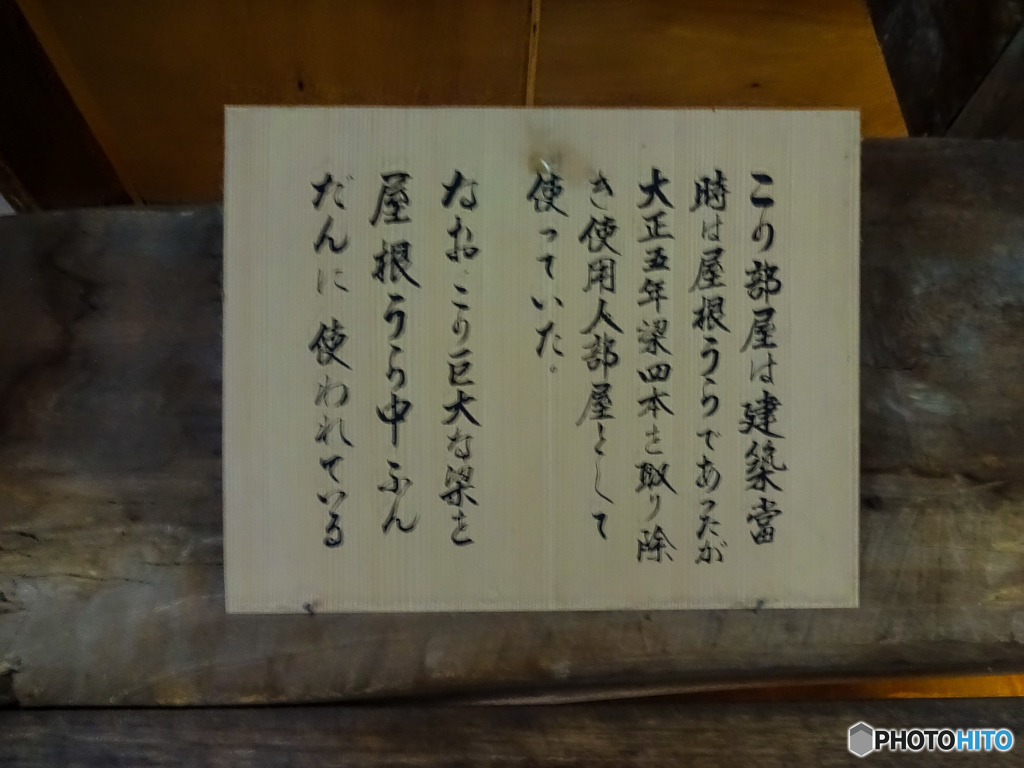 この部屋は建築當
時は屋根うらであったが
大正五年梁四本を取り除
き使用人部屋として
使っていた。
なお、この巨大な梁を
屋根うら中ふん
だんに使われている
PHOTOHITO